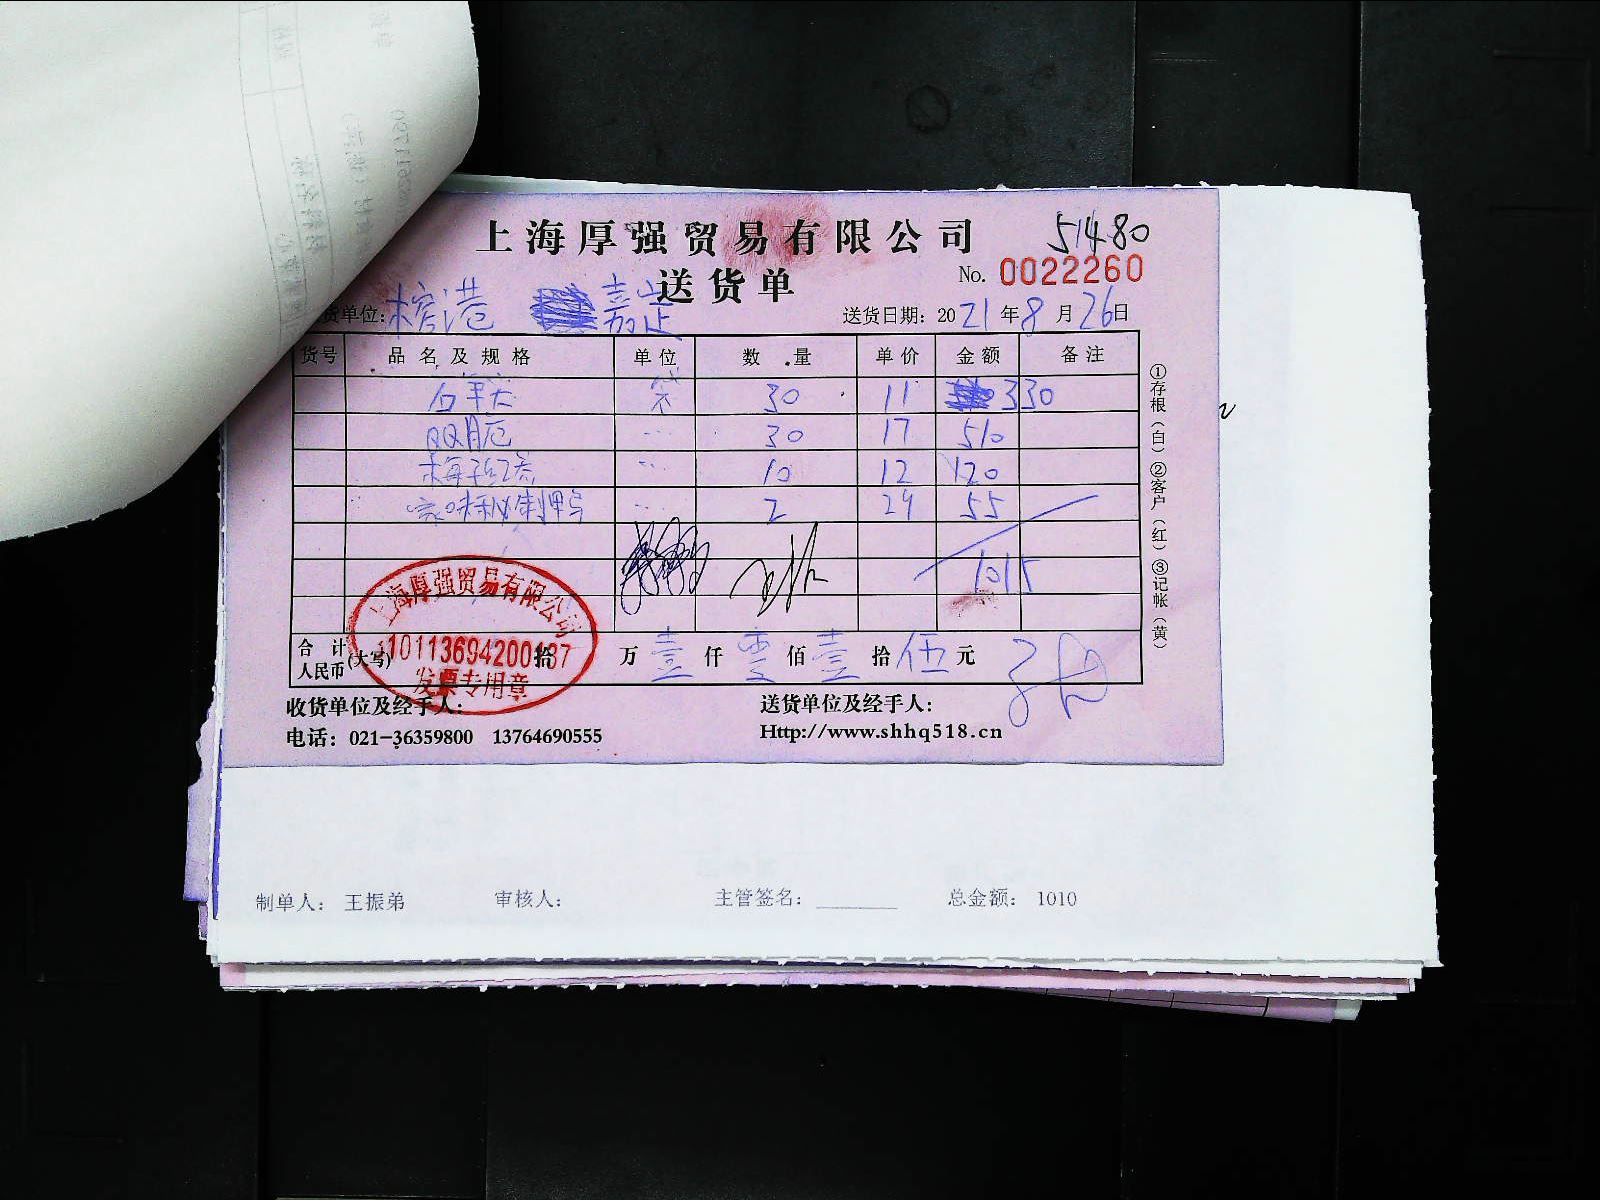 上海厚强贸易有限公司
51480
送货单
No. 0022260
货单位: 榕港 嘉定
送货日期: 2021年8月26日
货号 品名及规格 单位 数量 单价 金额 备注
30 11 330
QQ 30 17 510
10 12 120
2 55
1015
合计人民币(大写) 拾 万 壹 仟 零 佰 壹 拾 伍 元
上海厚强贸易有限公司
发票专用章
收货单位及经手人:
送货单位及经手人:
电话: 021-36359800 13764690555
Http://www.shhq518.cn
①存根(白)②客户(红)③记帐(黄)
制单人: 王振弟 审核人: 主管签名: 总金额: 1010